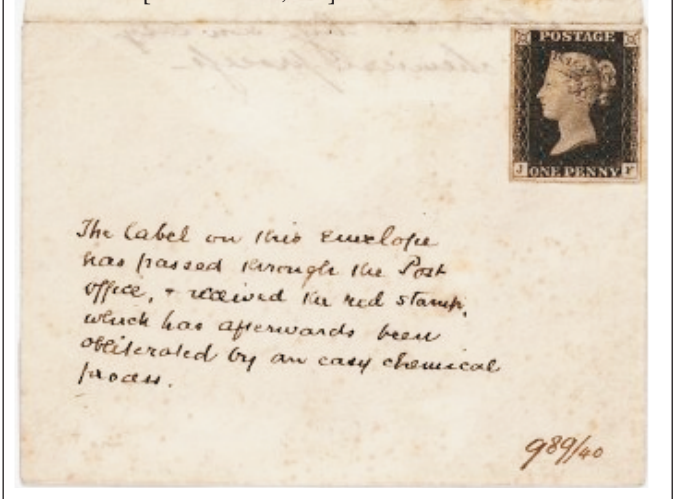 POSTAGE
J ONE PENNY F
The label on this Envelope
has passed through the Post
office, + received the red stamp,
which has afterwards been
obliterated by an easy chemical
process.
989/40